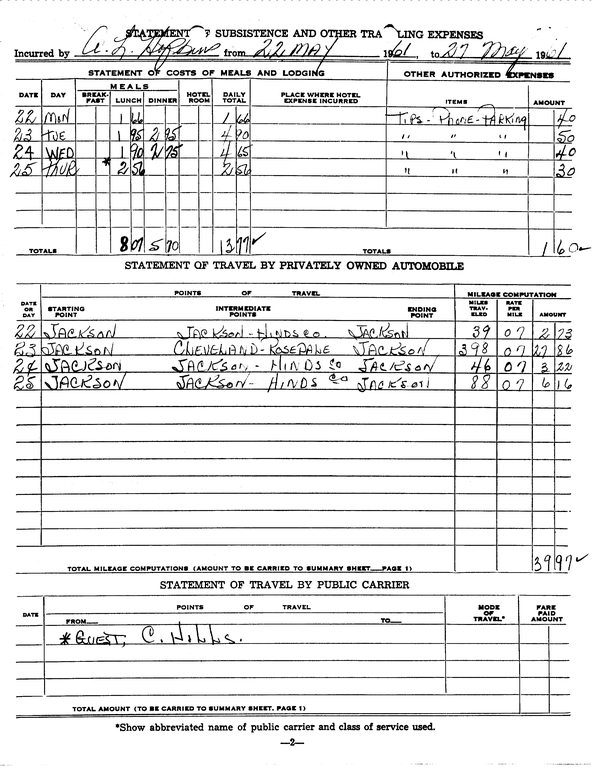 STATEMENT OF SUBSISTENCE AND OTHER TRAVELING EXPENSES
Incurred by A. L. Hopkins from 22 MAY 1961, to 27 May 1961
STATEMENT OF COSTS OF MEALS AND LODGING OTHER AUTHORIZED EXPENSES
MEALS
DATE DAY BREAK-FAST LUNCH DINNER HOTEL ROOM DAILY TOTAL PLACE WHERE HOTEL EXPENSE INCURRED ITEMS AMOUNT
22 MON 1 66 1 66 TIPS - PHONE - PARKING 40
23 TUE 1 95 2 95 4 90 " " " 50
24 WED 1 90 2 75 4 65 " " " 40
25 THUR * 2 56 2 56 " " " 30
TOTALS 8 07 5 70 13 77 ✓ TOTALS 1 60 ✓
STATEMENT OF TRAVEL BY PRIVATELY OWNED AUTOMOBILE
POINTS OF TRAVEL MILEAGE COMPUTATION
DATE OR DAY STARTING POINT INTERMEDIATE POINTS ENDING POINT MILES TRAV-ELED RATE PER MILE AMOUNT
22 JACKSON JACKSON - HINDS CO. JACKSON 39 07 2 73
23 JACKSON CLEVELAND - ROSEDALE JACKSON 398 07 27 86
24 JACKSON JACKSON - HINDS CO JACKSON 46 07 3 22
25 JACKSON JACKSON - HINDS CO JACKSON 88 07 6 16
TOTAL MILEAGE COMPUTATIONS (AMOUNT TO BE CARRIED TO SUMMARY SHEET PAGE 1) 39 97 ✓
STATEMENT OF TRAVEL BY PUBLIC CARRIER
DATE POINTS OF TRAVEL MODE OF TRAVEL* FARE PAID AMOUNT
FROM TO
* GUEST, C. HILLS.
TOTAL AMOUNT (TO BE CARRIED TO SUMMARY SHEET, PAGE 1)
*Show abbreviated name of public carrier and class of service used.
—2—